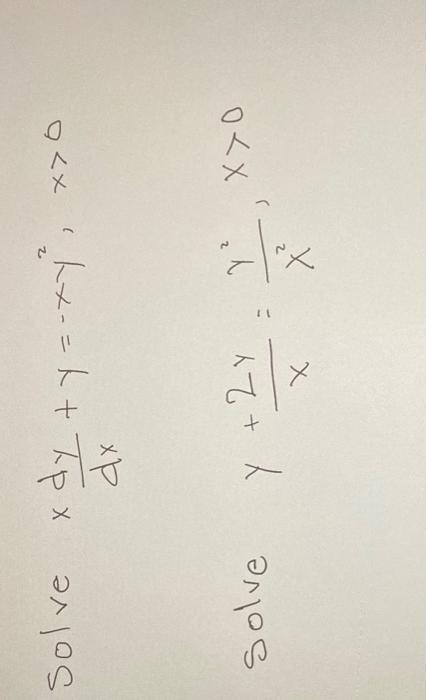 Solve x dy/dx + y = -xy², x>0
Solve y + 2y/x = y²/x², x>0